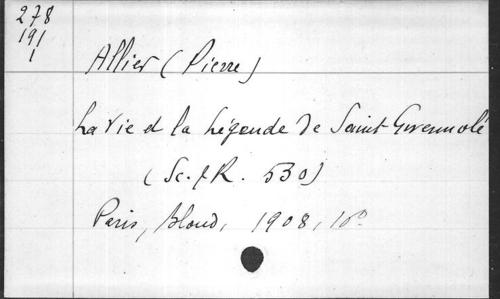 278
191
1
Allier (Pierre)
La Vie et la Légende de Saint Gwennolé
(Sc. & R. 530)
Paris, Bloud, 1908, 16º